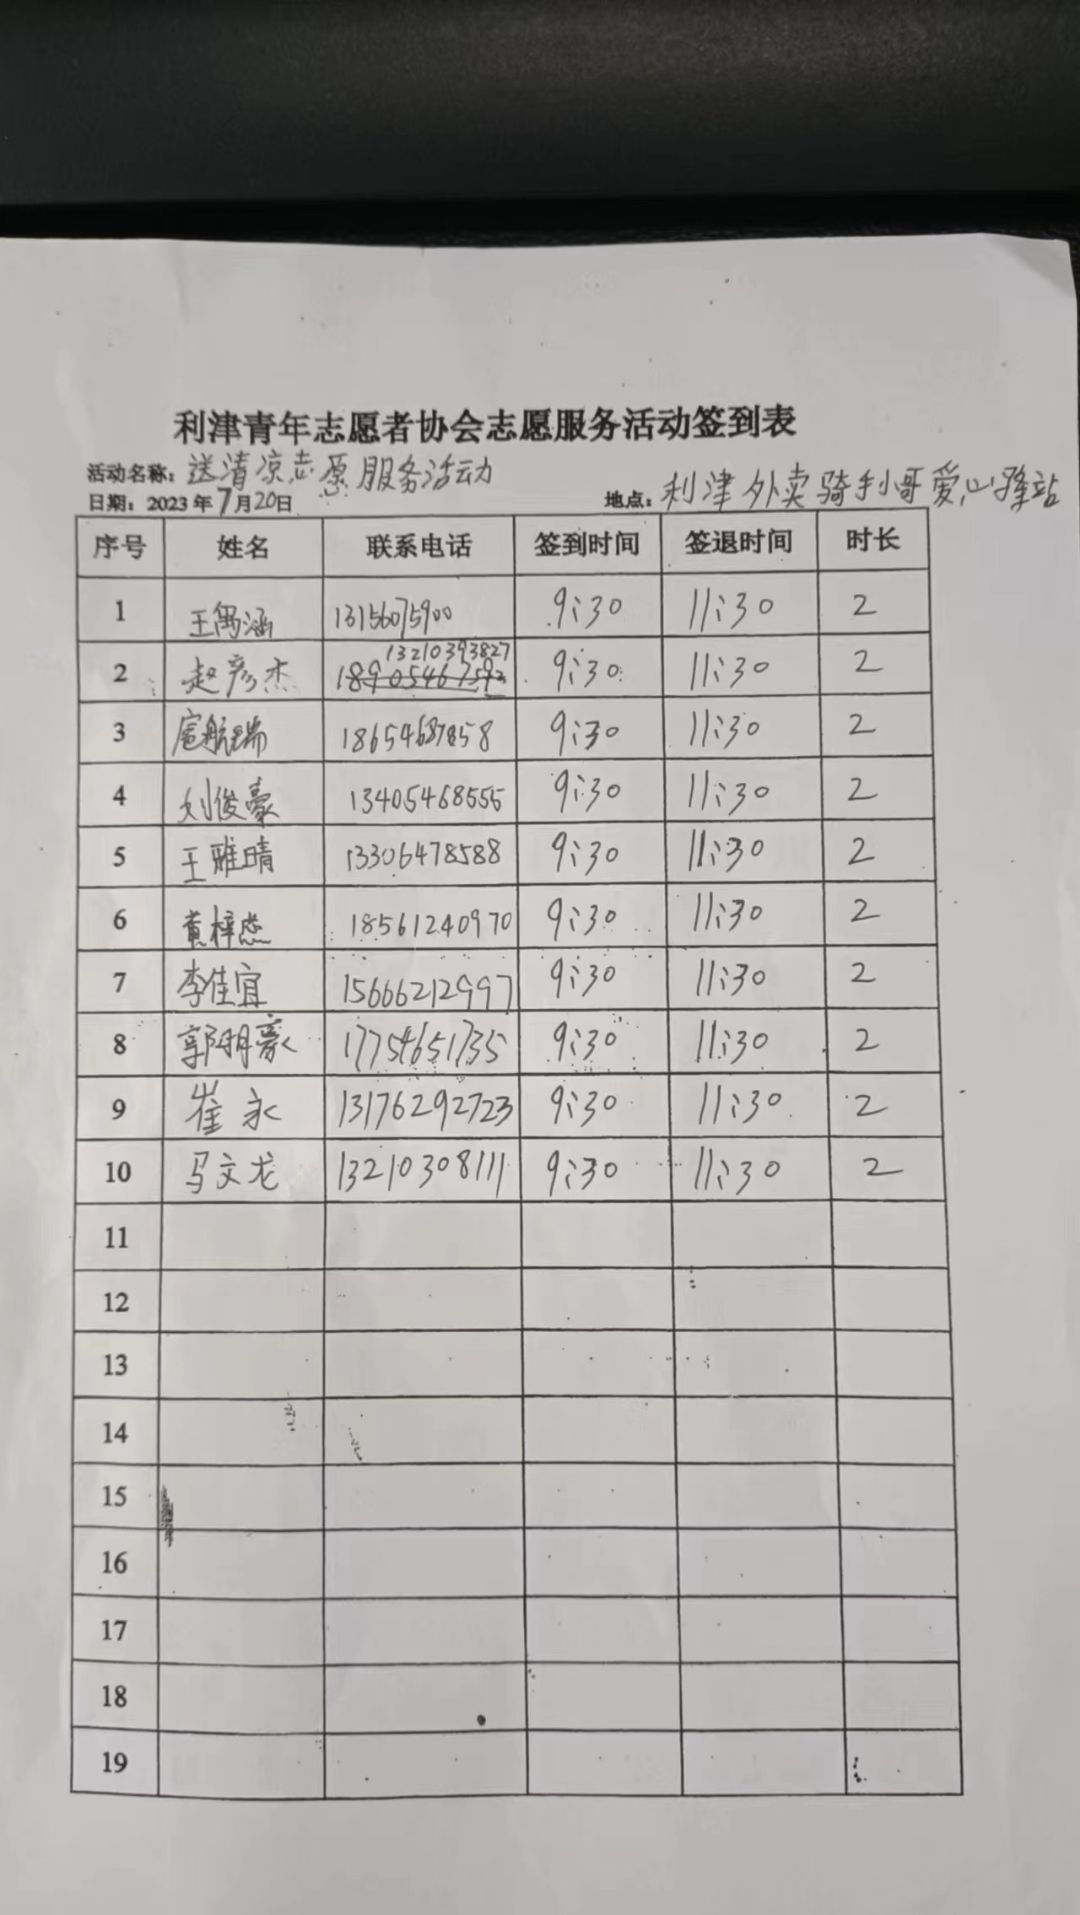 利津青年志愿者协会志愿服务活动签到表
活动名称：送清凉志愿服务活动
日期：2023年7月20日 地点：利津外卖骑手小哥爱心驿站
序号 姓名 联系电话 签到时间 签退时间 时长
1 王禹涵 13156075900 9:30 11:30 2
13210393827
2 赵彦杰 9:30 11:30 2
3 扈航瑞 18654687858 9:30 11:30 2
4 刘俊豪 13405468555 9:30 11:30 2
5 王雅晴 13306478588 9:30 11:30 2
6 黄梓 18561240970 9:30 11:30 2
7 李佳宜 15666212997 9:30 11:30 2
8 郭明豪 17754651735 9:30 11:30 2
9 崔永 13176292723 9:30 11:30 2
10 马文龙 13210308111 9:30 11:30 2
11
12
13
14
15
16
17
18
19